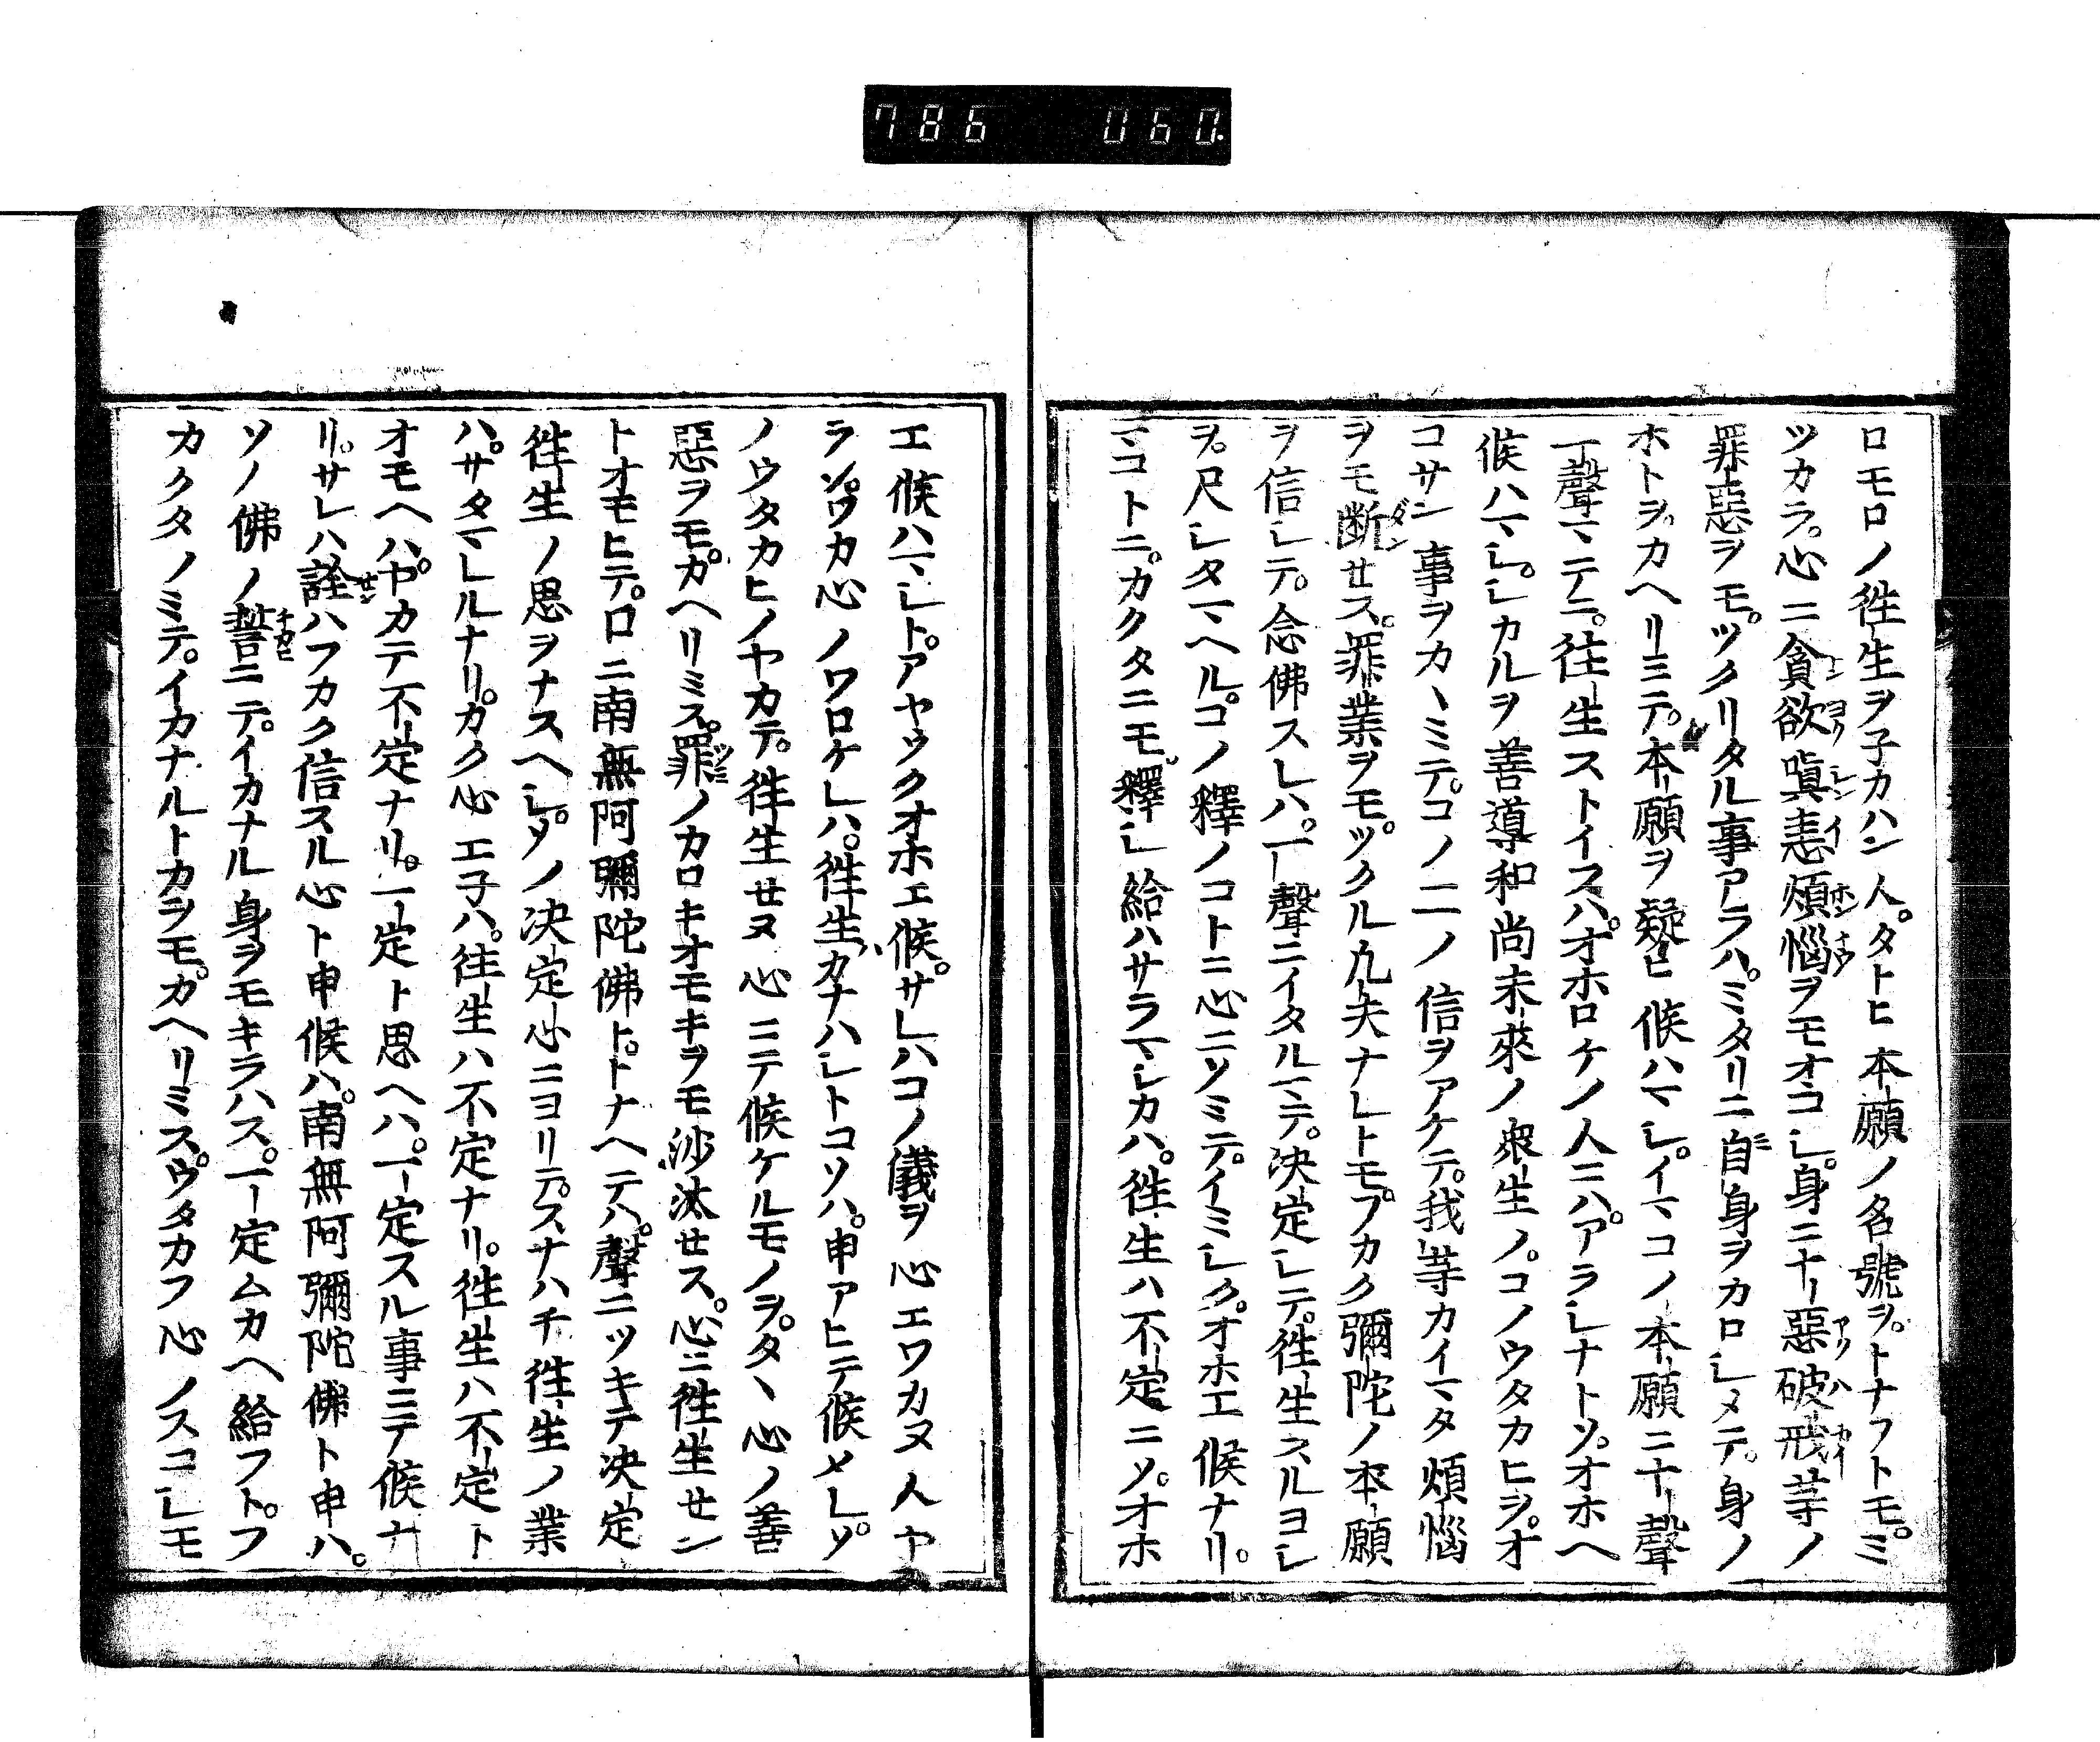 786 060.
ロモロノ徃生ヲ子カハン人。タトヒ本願ノ名號ヲ。トナフトモ。ミ
ツカラ。心ニ貪欲瞋恚煩惱ヲモオコシ。身ニ十惡破戒等ノ
罪惡ヲモ。ツクリタル事アラハ。ミタリニ自身ヲカロシメテ。身ノ
ホトヲ。カヘリミテ。本願ヲ疑ヒ候ハマシ。イマコノ本願ニ十聲
一聲マテニ。徃生ストイスハ。オホロケノ人ニハ。アラシナトソ。オホヘ
候ハマシ。シカルヲ善導和尚未來ノ衆生ノ。コノウタカヒヲ。オ
コサン事ヲカヽミテ。コノ二ノ信ヲアケテ。我等カイマタ煩惱
ヲモ断セス。罪業ヲモ。ツクル凡夫ナレトモ。フカク彌陀ノ本願
ヲ信シテ。念佛スレハ。一聲ニイタルマテ。决定シテ。徃生スルヨシ
ヲ。尺シタマヘル。コノ釋ノコトニ心ニソミテ。イミシク。オホエ候ナリ。
マコトニ。カクタニモ釋シ給ハサラマシカハ。徃生ハ不定ニソ。オホ
エ候ハマシト。アヤウクオホエ候。サレハコノ儀ヲ心エワカヌ人ヤ
ラン。ワカ心ノワロケレハ。徃生カナハシトコソハ。申アヒテ候メレ。ソ
ノウタカヒノヤカテ。徃生セヌ心ニテ候ケルモノヲ。タヽ心ノ善
惡ヲモ。カヘリミス。罪ノカロキオモキヲモ沙汰セス。心ニ徃生セン
トオモヒテ。口ニ南無阿彌陀佛ト。トナヘテハ。聲ニツキテ决定
徃生ノ思ヲナスヘシ。ソノ决定心ニヨリテ。スナハチ徃生ノ業
ハ。サタマレルナリ。カク心エ子ハ。徃生ハ不定ナリ。徃生ハ不定ト
オモヘハ。ヤカテ不定ナリ。一定ト思ヘハ。一定スル事ニテ候ナ
リ。サレハ詮ハフカク信スル心ト申候ハ。南無阿彌陀佛ト申ハ。
ソノ佛ノ誓ニテ。イカナル身ヲモキラハス。一定ムカヘ給フト。フ
カクタノミテ。イカナルトカヲモ。カヘリミス。ウタカフ心ノスコシモ